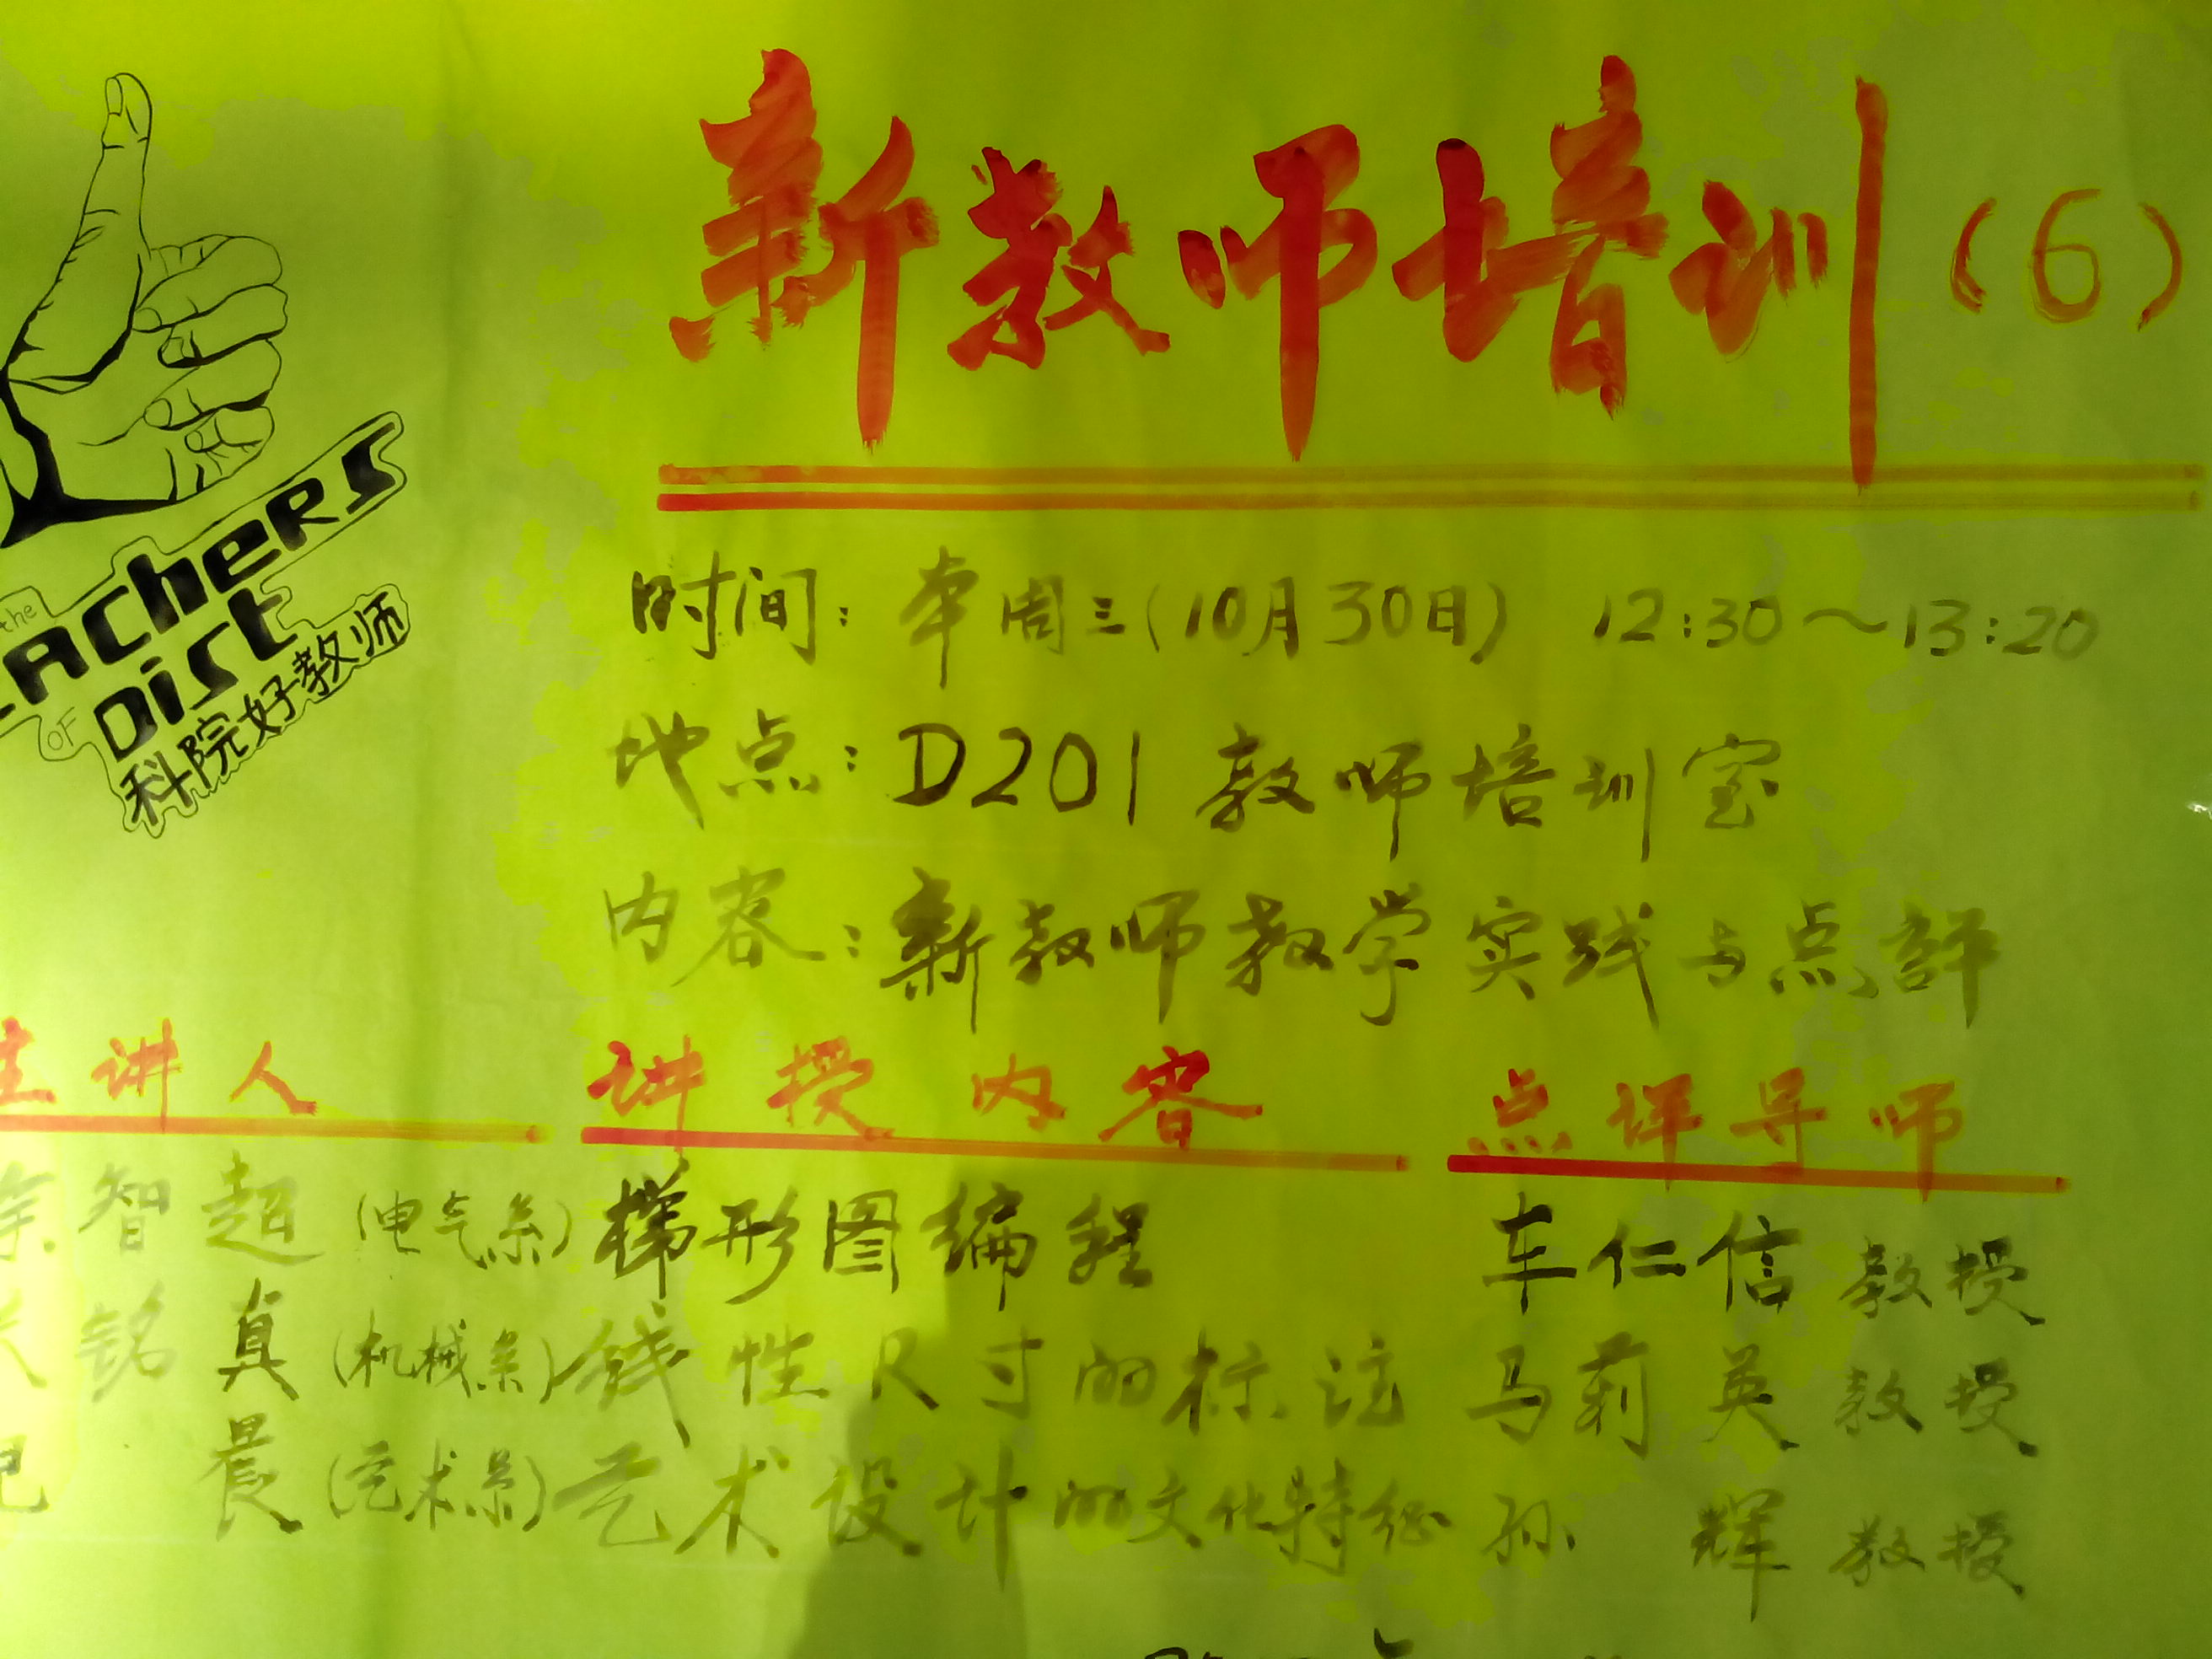 新教师培训(6)
the
eachers
OF Dist
科院好教师
时间: 本周三(10月30日) 12:30～13:20
地点: D201 教师培训室
内容: 新教师教学实践与点評
主讲人 讲授内容 点评导师
智超(电气系) 梯形图编程 车仁信 教授
铭真(机械系) 线性尺寸的标注 马莉英 教授
晨(艺术系) 艺术设计的文化特征 孙辉 教授